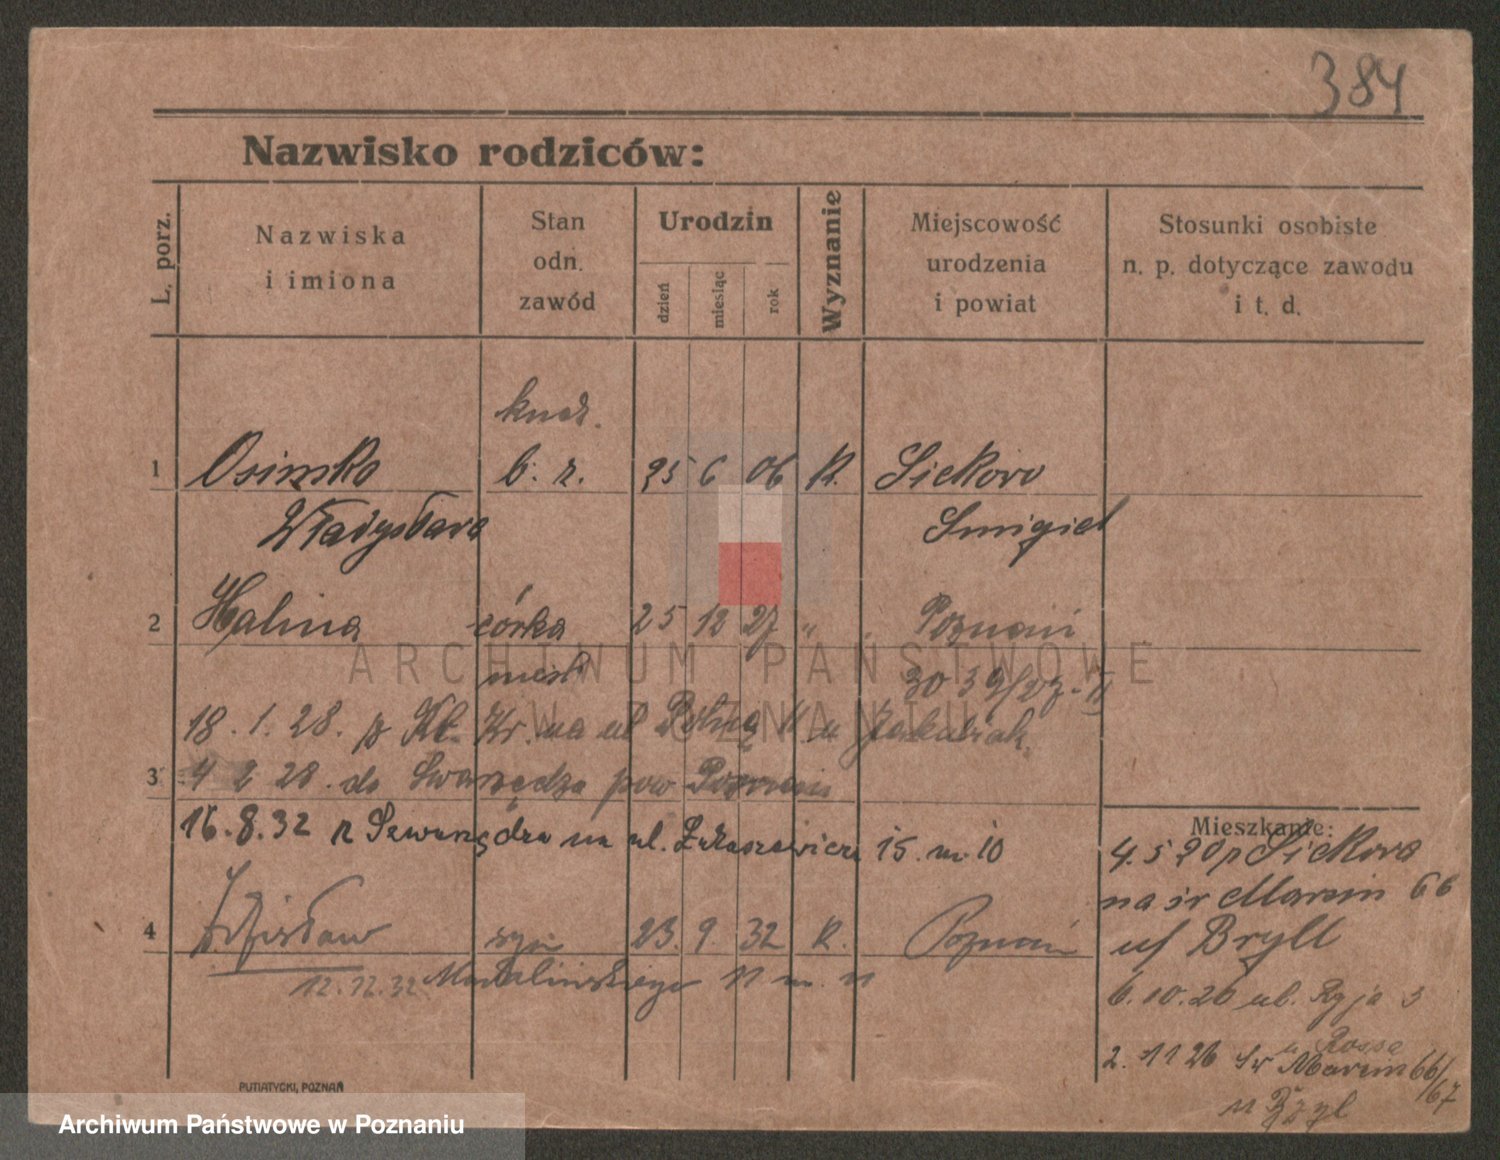 384
Nazwisko rodziców:
L. porz.
Nazwiska
i imiona
Stan
odn.
zawód
Urodzin
dzień
miesiąc
rok
Wyznanie
Miejscowość
urodzenia
i powiat
Stosunki osobiste
n. p. dotyczące zawodu
i t. d.
1 Osińska b. z. 25 6 06 K. Siekowo
Władysława Smigiel
2 Halina córka 25 12 27 " Poznań
nieśl 3039/27-II
18. 1. 28. p Kr. na ul Polną 11 u
3 4 2 28. do Swarzędza pow Poznań
16.8.32 z Swarzędza na ul. Łukaszewicza 15. m. 10
4 Zdzisław syn 23. 9. 32 K. Poznań
12.12.32 Madalińskiego 11 m. 11
Mieszkanie:
4. 5 20 p Siekowa
na św Marcin 66
u/ Bryll
6.10.26 ul. Ryja 3
2. 11 26 św Marcin 66/67
PUTIATYCKI, POZNAŃ
ARCHIWUM PAŃSTWOWE
W POZNANIU
Archiwum Państwowe w Poznaniu